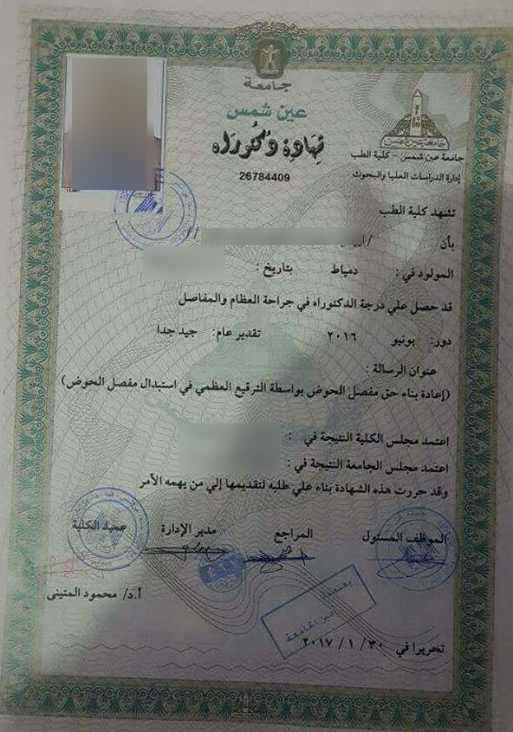 جامعة
عين شمس
شهادة دكتوراه
26784409
جامعة عين شمس - كلية الطب
إدارة الدراسات العليا والبحوث
تشهد كلية الطب
بأن /
المولود في : دمياط بتاريخ :
قد حصل علي درجة الدكتوراه في جراحة العظام والمفاصل
دور: يونيو ٢٠١٦ تقدير عام: جيد جدا
عنوان الرسالة :
(إعادة بناء حق مفصل الحوض بواسطة الترقيع العظمي في استبدال مفصل الحوض)
اعتمد مجلس الكلية النتيجة في :
اعتمد مجلس الجامعة النتيجة في :
وقد حررت هذه الشهادة بناء علي طلبه لتقديمها إلي من يهمه الأمر
الموظف المسئول المراجع مدير الإدارة عميد الكلية
أ.د/ محمود المتينى
تحريرا في ٣٠ / ١ / ٢٠١٧